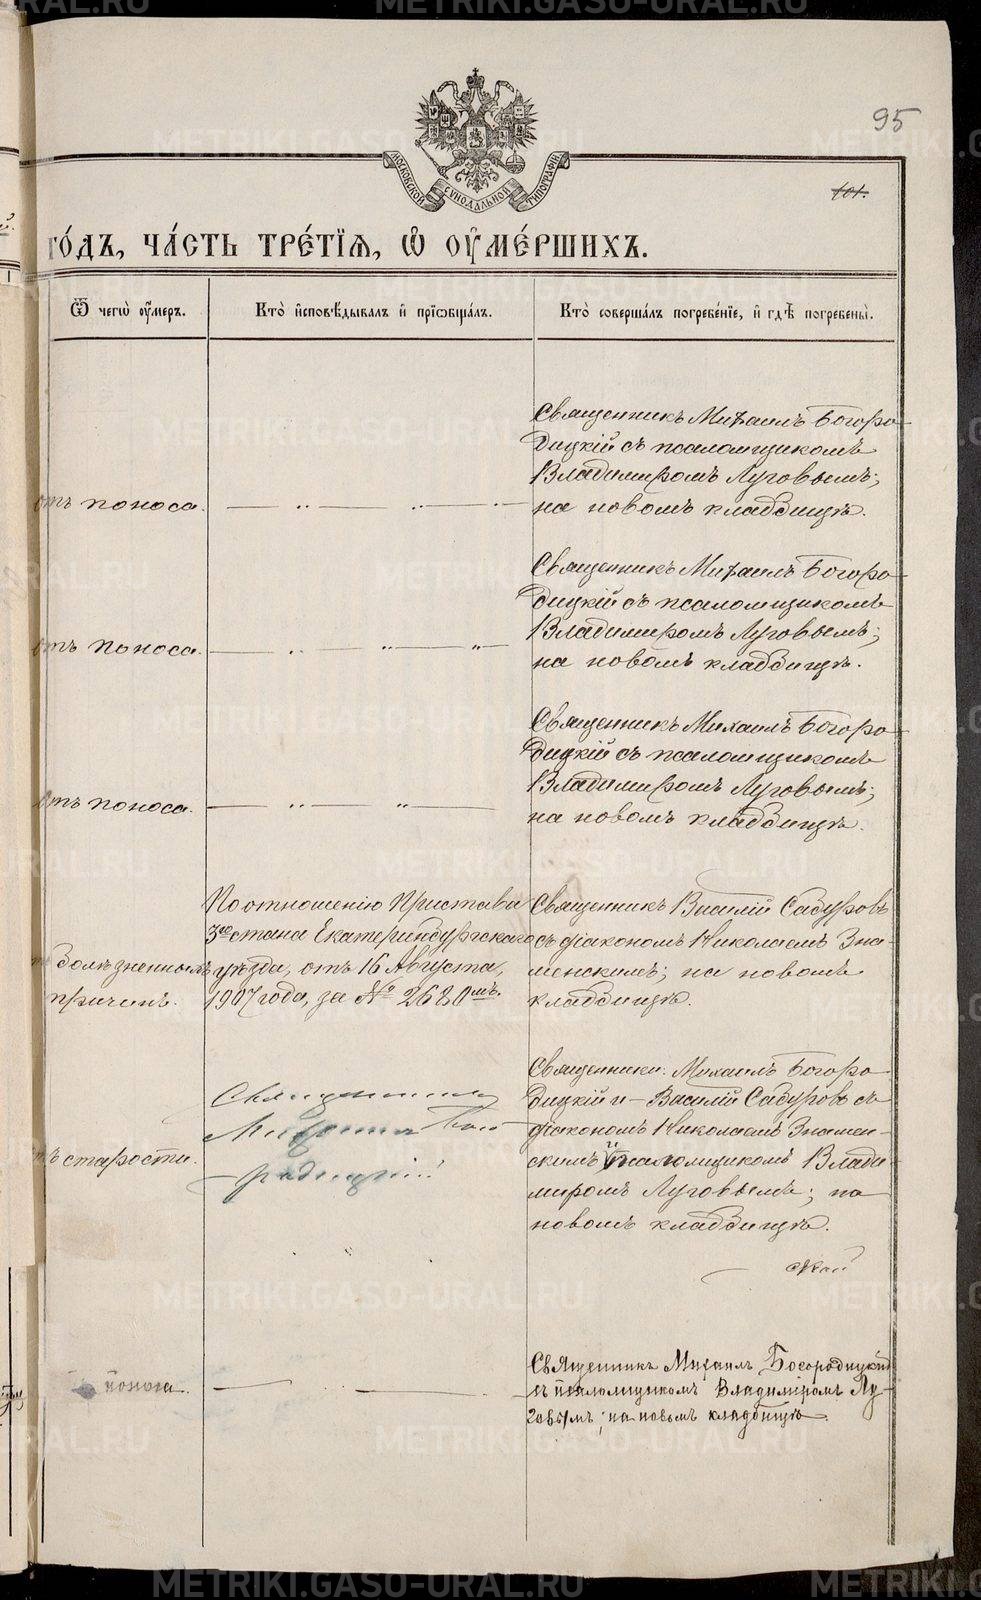 METRIKI.GASO-URAL.RU
95
МОСКОВСКОЙ СѴНОДАЛЬНОЙ ТИПОГРАФІИ
101.
го́дъ, ча́сть тре́тїѧ, ѡ҆ ᲂу҆ме́ршихъ.
Ѿ чегѡ̀ ᲂу҆́меръ.
Кто̀ и҆сповѣ́дывалъ и҆ прїѡбща́лъ.
Кто̀ соверша́лъ погребе́нїе, и҆ гдѣ̀ погребены̀.
отъ поноса.
Священникъ Михаилъ Богоро-
дицкій съ псаломщикомъ
Владимиромъ Луговымъ;
на новомъ кладбищѣ.
отъ поноса.
Священникъ Михаилъ Богоро-
дицкій съ псаломщикомъ
Владимиромъ Луговымъ;
на новомъ кладбищѣ.
отъ поноса.
Священникъ Михаилъ Богоро-
дицкій съ псаломщикомъ
Владимиромъ Луговымъ;
на новомъ кладбищѣ.
болѣзненныхъ
причинъ.
По отношенію Пристава
3го стана Екатеринбургскаго
уѣзда, отъ 16 Августа,
1907 года, за № 2680мъ.
Священникъ Василій Сабуровъ
съ діакономъ Николаемъ Зна-
менскимъ; на новомъ
кладбищѣ.
старости.
Священникъ
Михаилъ Бого-
родицкій
Священники: Михаилъ Богоро-
дицкій и Василій Сабуровъ съ
діакономъ Николаемъ Знамен-
скимъ и псаломщикомъ Влади-
миромъ Луговымъ; на
новомъ кладбищѣ.
поноса.
Священникъ Михаилъ Богородицкій
съ псаломщикомъ Владиміромъ Лу-
говымъ; на новомъ кладбищѣ.